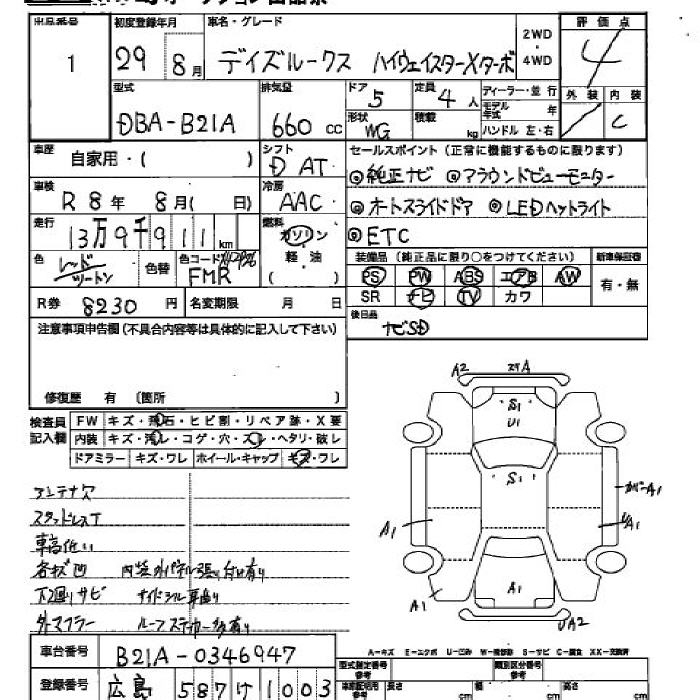 出品番号 初度登録年月 車名・グレード 2WD・4WD 評価点
1 29 8月 デイズルークス ハイウェイスターXターボ 4
型式 排気量 ドア 5 定員 4人 ディーラー・並行 外装 内装
DBA-B21A 660cc 形状 WG 積載 kg モデル年式 年 C
ハンドル 左・右
車歴 自家用・( ) シフト D AT セールスポイント (正常に機能するものに限ります)
車検 R8年 8月( 日) 冷房 AAC ◎純正ナビ ◎アラウンドビューモニター
走行 13万9千911km 燃料 ガソリン ◎オートスライドドア ◎LEDヘットライト
軽油 ( ) ◎ETC
色 レッド ツートン 色替 色コードNo. FMR 装備品 (純正品に限り○をつけてください) 新車保証書
PS PW ABS エアB AW 有・無
SR ナビ TV カワ
R券 8230円 名変期限 月 日 後日品
注意事項申告欄(不具合内容等は具体的に記入して下さい) ナビSD
修復歴 有 〔箇所 〕
検査員記入欄 FW キズ・飛石・ヒビ割・リペア跡・X要
内装 キズ・汚レ・コゲ・穴・スレ・ヘタリ・破レ
ドアミラー キズ・ワレ ホイール・キャップ キズ・ワレ
A2 スリA
S1
U1
S1
カバーA1
A1 UA1
A1
A1 UA2
アンテナ欠
スタッドレスT
車高低い
各キズ凹 内装外パネル張り付け有り
下廻りサビ サイドシル耳曲り
外マフラー ルーフステッカー多有り
車台番号 B21A-0346947
登録番号 広島 587 け 1003
A-キズ E-エクボ U-凹ミ W-補修跡 S-サビ C-腐食 XX-交換済
型式指定番号 参考 類別区分番号 参考
車庫証明用 参考 長さ cm 幅 cm 高さ cm